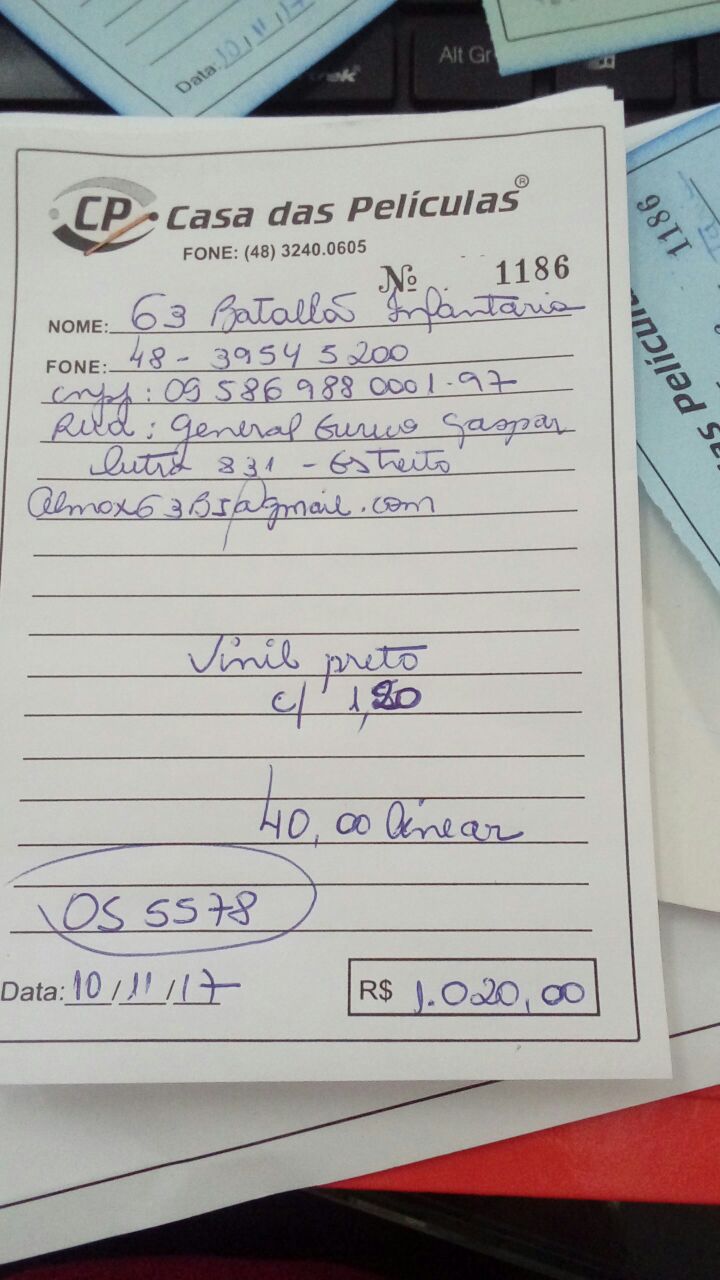 Data: 10/11/17
Alt Gr
CP Casa das Películas®
FONE: (48) 3240.0605
Nº 1186
NOME: 63 Batallão Infantaria
FONE: 48 - 3954 5200
cnpj: 09 586 988 0001-97
Rua: General Eurico Gaspar
Dutra 831 - Estreito
Almox63BI@gmail.com
Vinil preto
c/ 1,20
40,00 linear
OS 5578
Data: 10/11/17
R$ 1.020,00
1186
as película